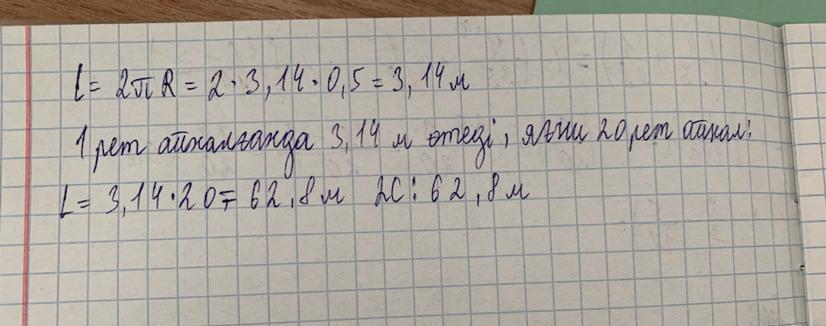 L = 2πR = 2·3,14·0,5 = 3,14 м
1 рет айналғанда 3,14 м өтеді, яғни 20 рет айнал:
L = 3,14·20 = 62,8 м ЖС: 62,8 м